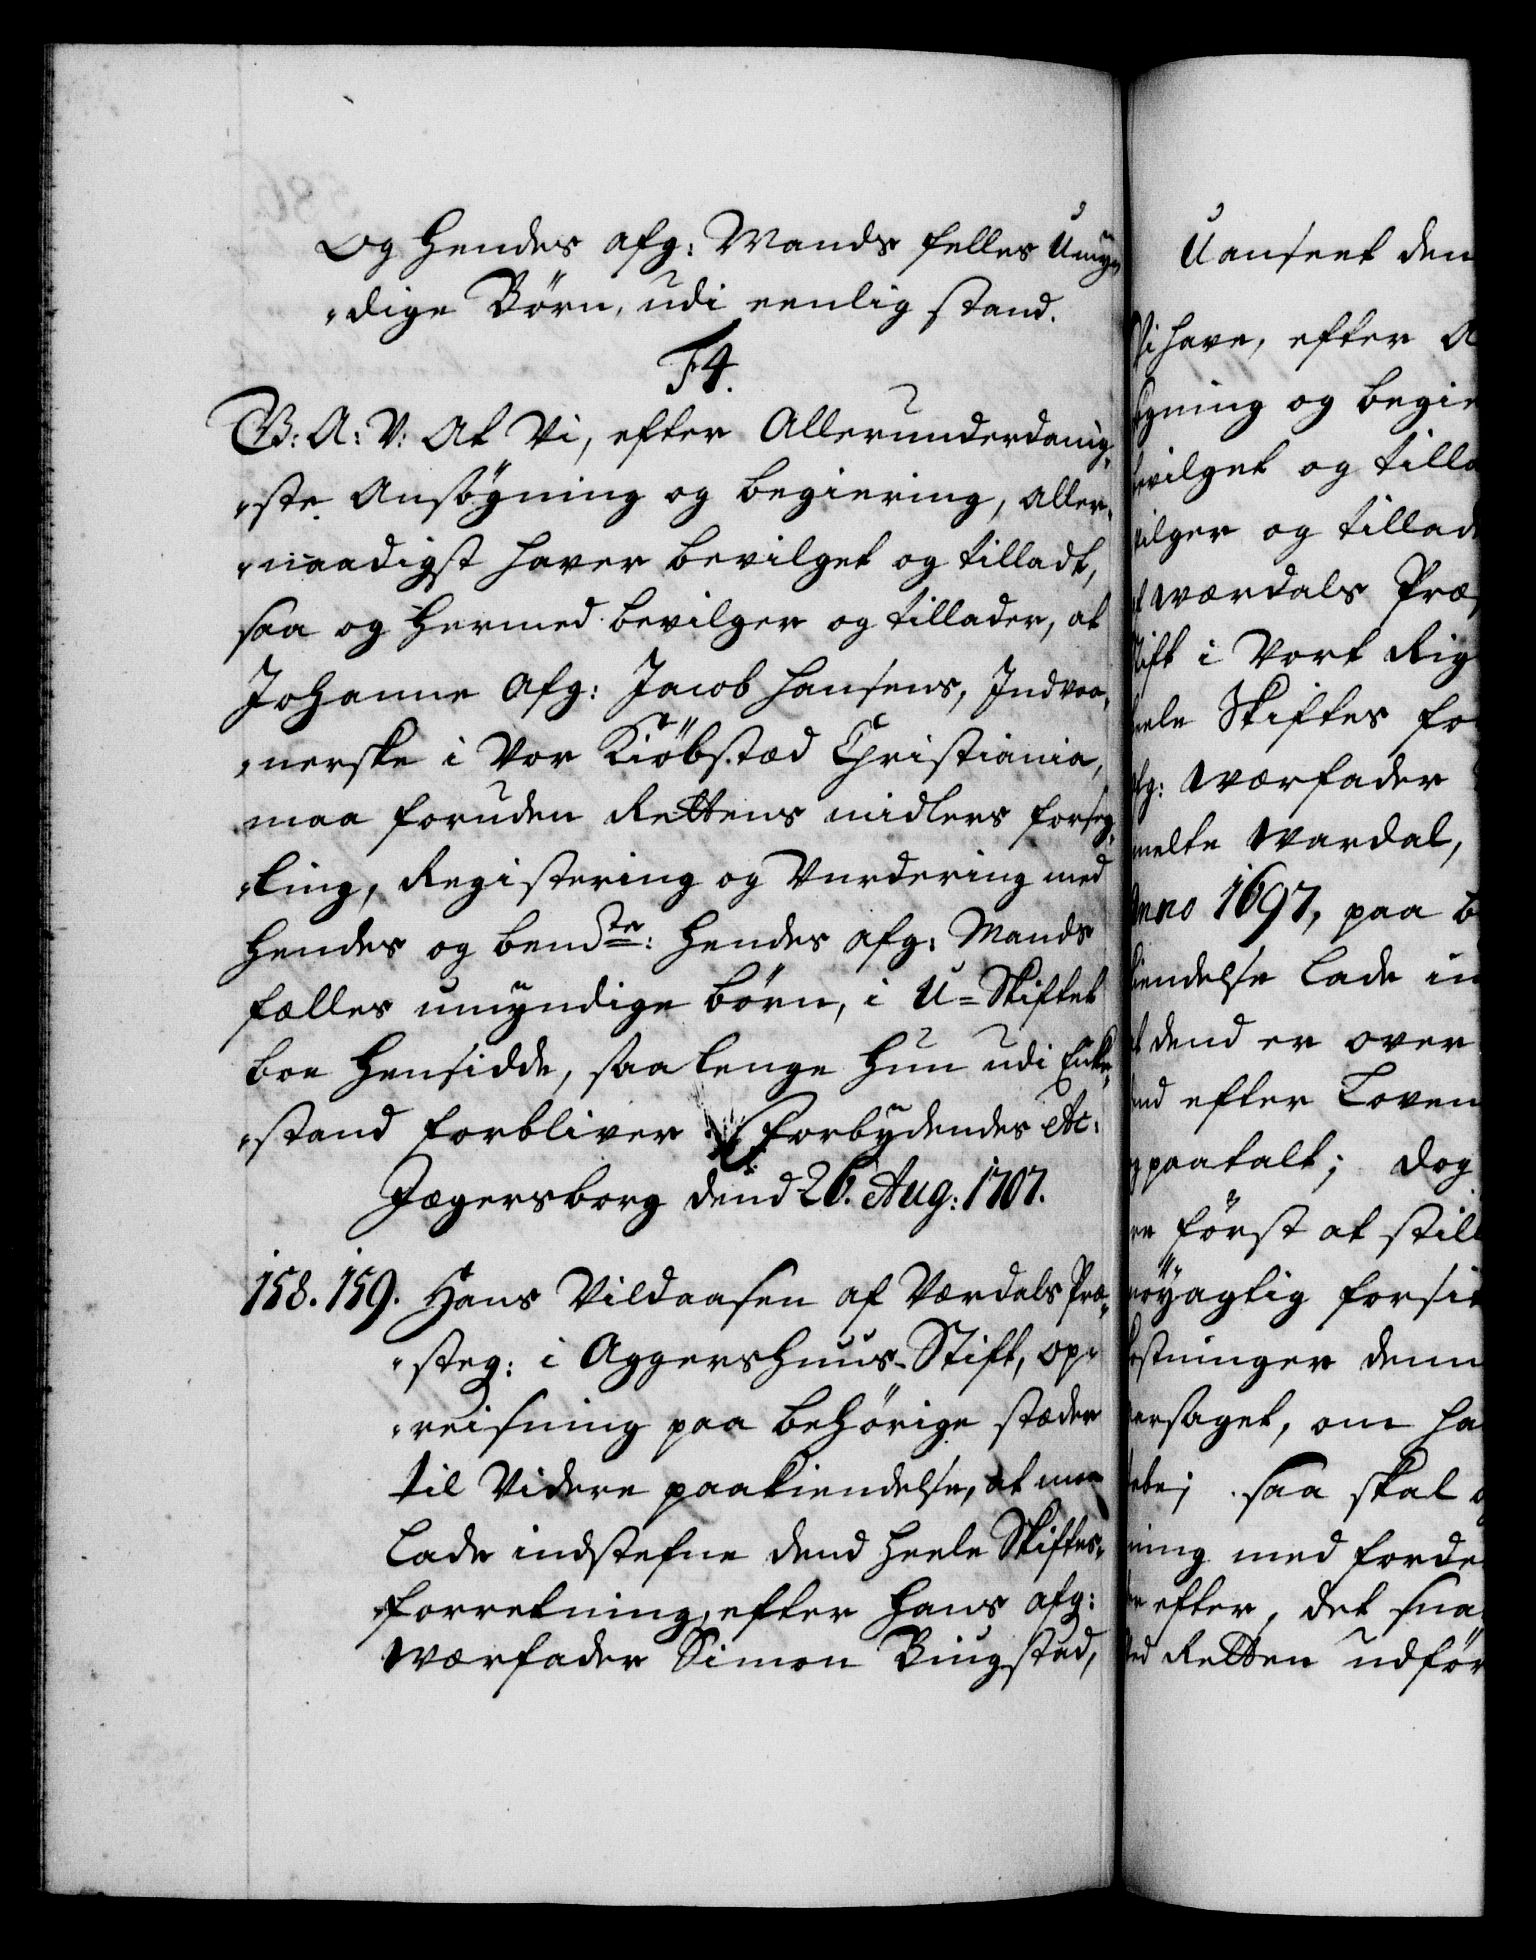 Og hendes afg: Mands felles Umÿn
"dige Börn, udi eenlig stand.
F4.
G: A: V: At Vi, efter Allerunderdanig,
"ste Ansögning og begiering, aller,
"naadigst haver bevilget og tilladt,
saa og hermed bevilger og tillader, at
Johanne afg: Jacob Hansens, Indvaa,
"nerske i Vor Kiöbstæd Christiania,
maa foruden Rettens midlers forseg,
"ling, Registering og Vurdering med
hendes og bemdte: hendes afg: Mands
fælles umÿndige börn, i U=Skiftet
boe hensidde, saa lenge hun udi Enke,
"stand forbliver. Forbÿdendes etc:
Jægersborg dend 26. Aug: 1707.
158. 159. Hans Vildaasen af Værdals Præ,
"steg: i Aggershuus-Stift, op"
"reisning paa behörige stæder
til Videre paakiendelse, at maa
lade indstefne dend heele Skiftes"
forretning, efter hans afg:
Værfader Simon Biugstad,
Uanseet den
Vi have, efter A
ögning og begie
bevilget og tilla
vilger og tillad
Værdals Præ
Stift i Vort Rig
heele Skiftes fo
afg: Værfader
melte Wardal,
Anno 1697, paa b
kiendelse lade in
dend er over
efter Loven
paatalt; dog
först at still
nöÿagtig forsik
kostninger denn
versaget, om ha
saa skal o
ning med forde
efter, det sna
ved Retten udför